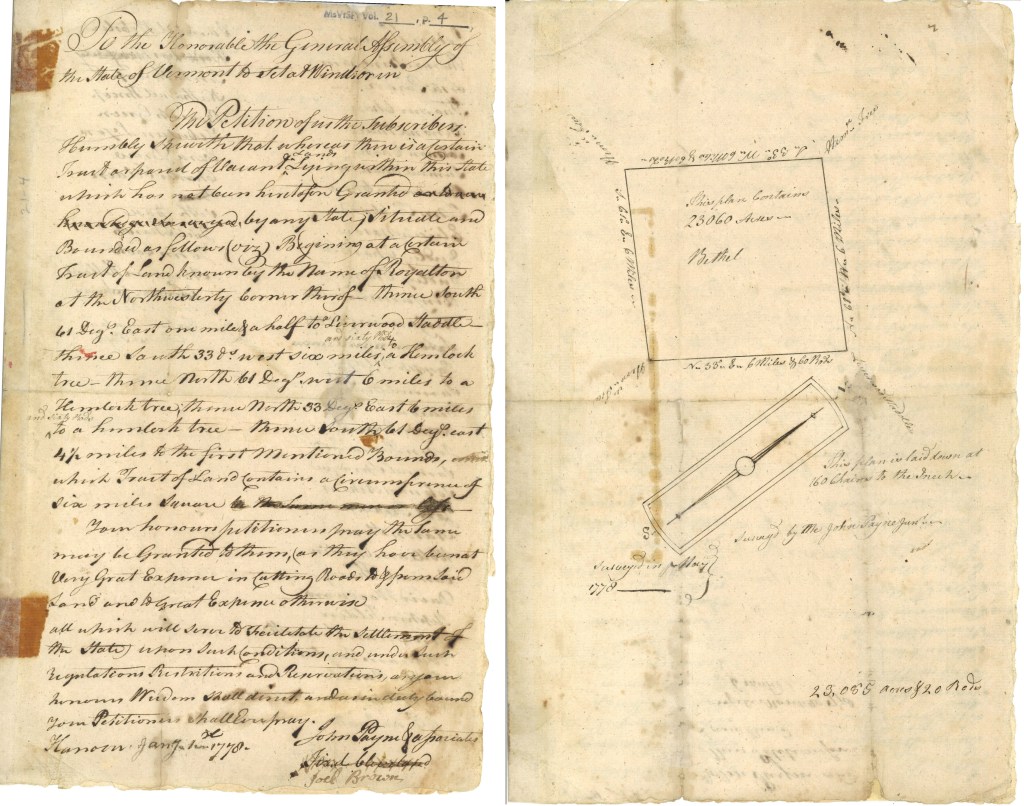 MsVtSP, Vol. 21, p. 4
To the Honorable the General Assembly of
the State of Vermont to Set at Windsor in
The Petition of us the Subscribers
Humbly Sheweth that whereas thir is a Certain
Tract or parsel of Vacant Lands Lyeing within this State
which has not been heretofore Granted
by any State, Situate and
Bounded as follows (viz) Begining at a Certain
Tract of Land known by the Name of Royalton
at the Northwesterly Corner thirof — thence South
61 Degs. East one mile & a half to Leverwood Staddle —
and sixty Rods
thence South 33 ds. west six miles, to a Hemlock
tree — thence North 61 Degs. west 6 miles to a
Hemlock tree, thence North 33 Degs. East 6 miles
and sixty Rods
to a hemlock tree — thence South 61 Degs. east
4½ miles to the first Mentioned Bounds,
which Tract of Land Contains a Circumference of
six miles Square
Your honours petitioners pray the Same
may be Granted to them, (as they have been at
Very Grat Expence in Cutting Roads to & from said
Land and to Great Expence otherwise
all which will serve to Facilitate the Settlement of
the State) upon such Conditions, and under such
regulations Restrictions and Reservations, as your
honours Wisdom shall direct, and as in duty bound
Your Petitioners shall Ever pray.
Hanover Jany. 1778 —
John Payne & associates
Joel Brown
S. 33 W. 6 Miles & 60 Rods
S. 61 E. 6 Miles
This plan Contains
23060 Acres —
Bethel
N. 61 W. 6 Miles
N. 33 E. 6 Miles & 60 Rods
This plan is laid down at
160 Chains to the Inch —
Survey'd by Me John Payne Junr. —
Survey'd in May
1778
23,085 acres & 20 Rods